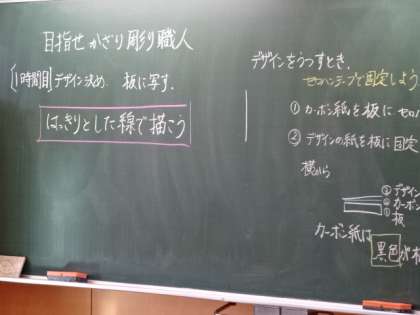 目指せ かざり彫り職人
[1時間目] デザイン決め 板に写す.
はっきりとした線で描こう
デザインをうつすとき、
セロハンテープで固定しよう
① カーボン紙を板に セロハ
② デザインの紙を板に固定
横から
③ デザイン
② カーボン
① 板
カーボン紙は 黒色が